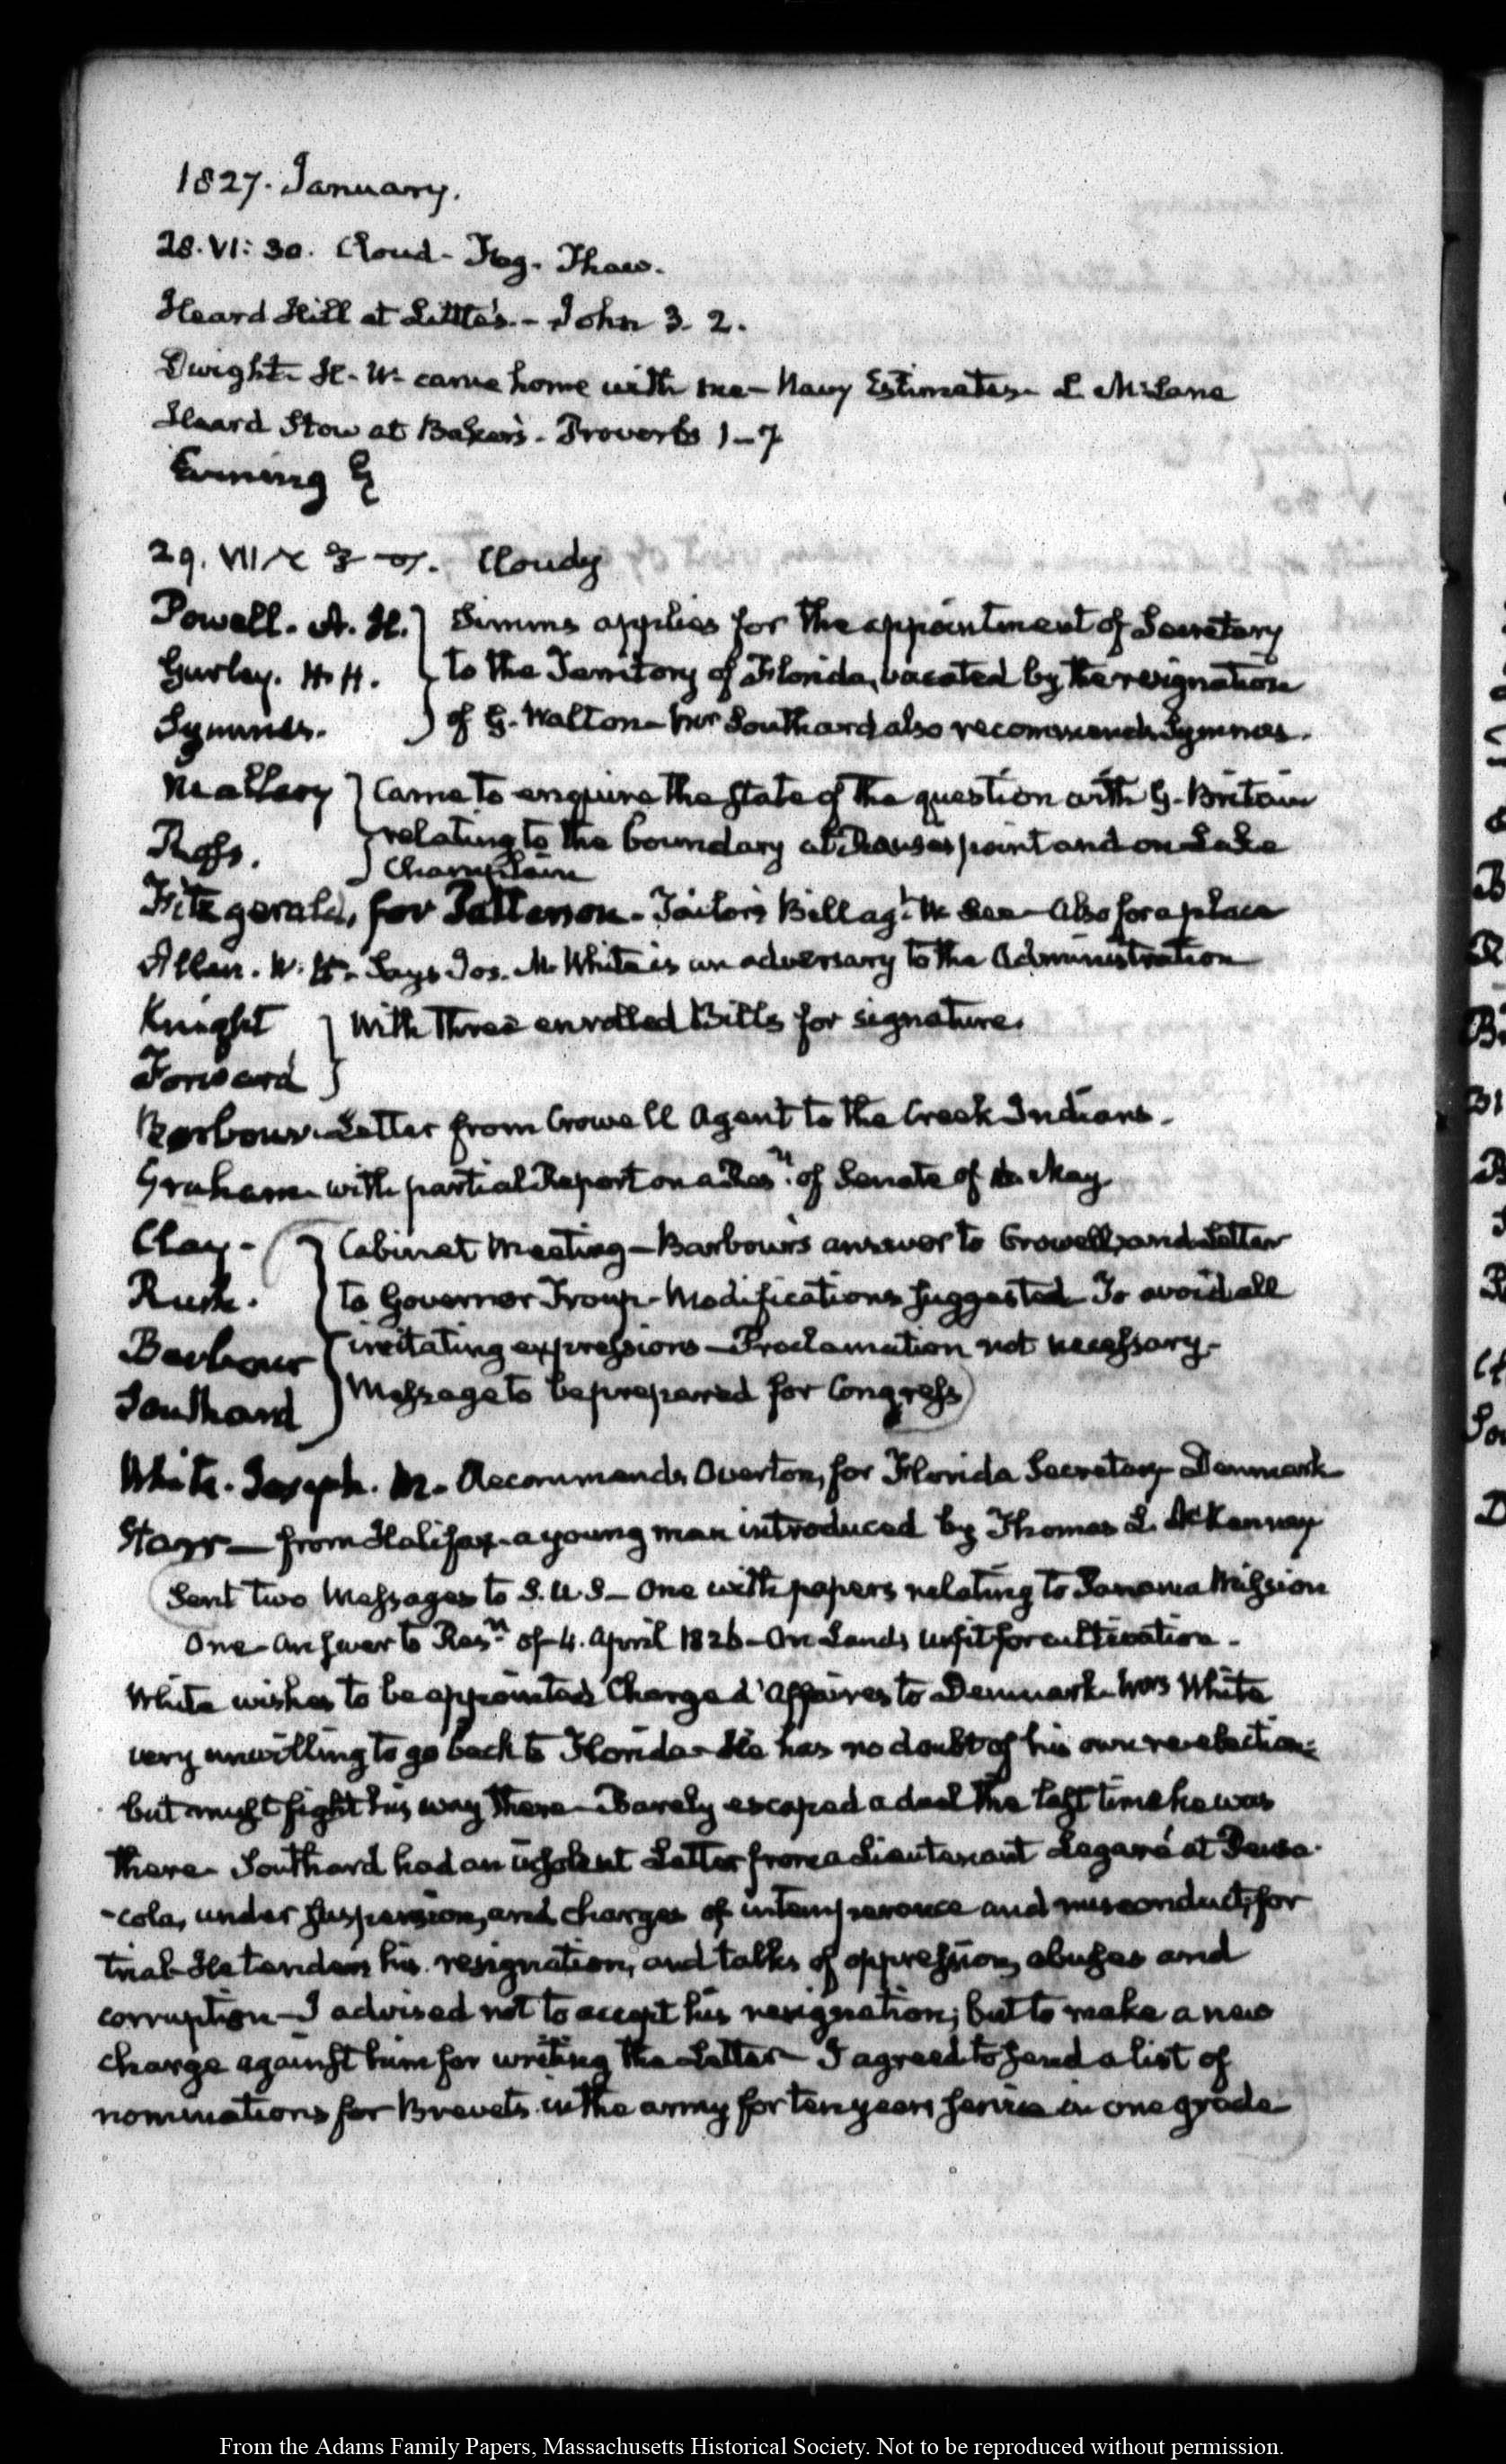 1827. January.
28. VI: 30. Cloud - Fog - Thaw.
Heard Hill at Little's. - John 3. 2.
Dwight H. W. came home with me - Navy Estimates. L McLane
Heard Stow at Baker's. Proverbs 1-7
Evening
29. VII Cloudy
Powell. A. H. } Simms applies for the appointment of Secretary
Gurley. H. H. } to the Territory of Florida, vacated by the resignation
Symmes. } of G. Walton - Mr Southard also recommends Symmes.
Mallary } Came to enquire the state of the question with G. Britain
Ross. } relating to the boundary at Rouses point and on Lake
Champlain
Fitzgerald, for Patterson - Tailor's Bill agt. W. Lee - Also for a place
Allen. W. H. Says Jos. M. White is an adversary to the Administration
Knight } With three enrolled Bills for signature.
Forward }
Barbour. Letter from Crowell Agent to the Creek Indians.
Graham with partial Report on a Resn. of Senate of May
Clay - } Cabinet Meeting - Barbour's answer to Crowell, and Letter
Rush. } to Governor Troup - Modifications suggested To avoid all
Barbour } irritating expressions - Proclamation not necessary -
Southard } Message to be prepared for Congress
White. Joseph. M. Recommends Overton, for Florida Secretary Denmark
Starr - from Halifax - a young man introduced by Thomas L. McKenney
Sent two Messages to S. U. S - One with papers relating to Panama Mission
One - Answer to Resn. of 4. April 1826 - On Lands unfit for cultivation -
White wishes to be appointed Chargé d'Affaires to Denmark - Mrs White
very unwilling to go back to Florida - He has no doubt of his own re-election:
but must fight his way there - Barely escaped a duel the last time he was
there - Southard had an insolent Letter from a Lieutenant Legaré at Pensa-
-cola, under suspension, and charges of intemperance and misconduct, for
trial - He tenders his resignation, and talks of oppression, abuses and
corruption - I advised not to accept his resignation; but to make a new
charge against him for writing the Letter - I agreed to send a list of
nominations for Brevets in the army for ten years service in one grade
From the Adams Family Papers, Massachusetts Historical Society. Not to be reproduced without permission.